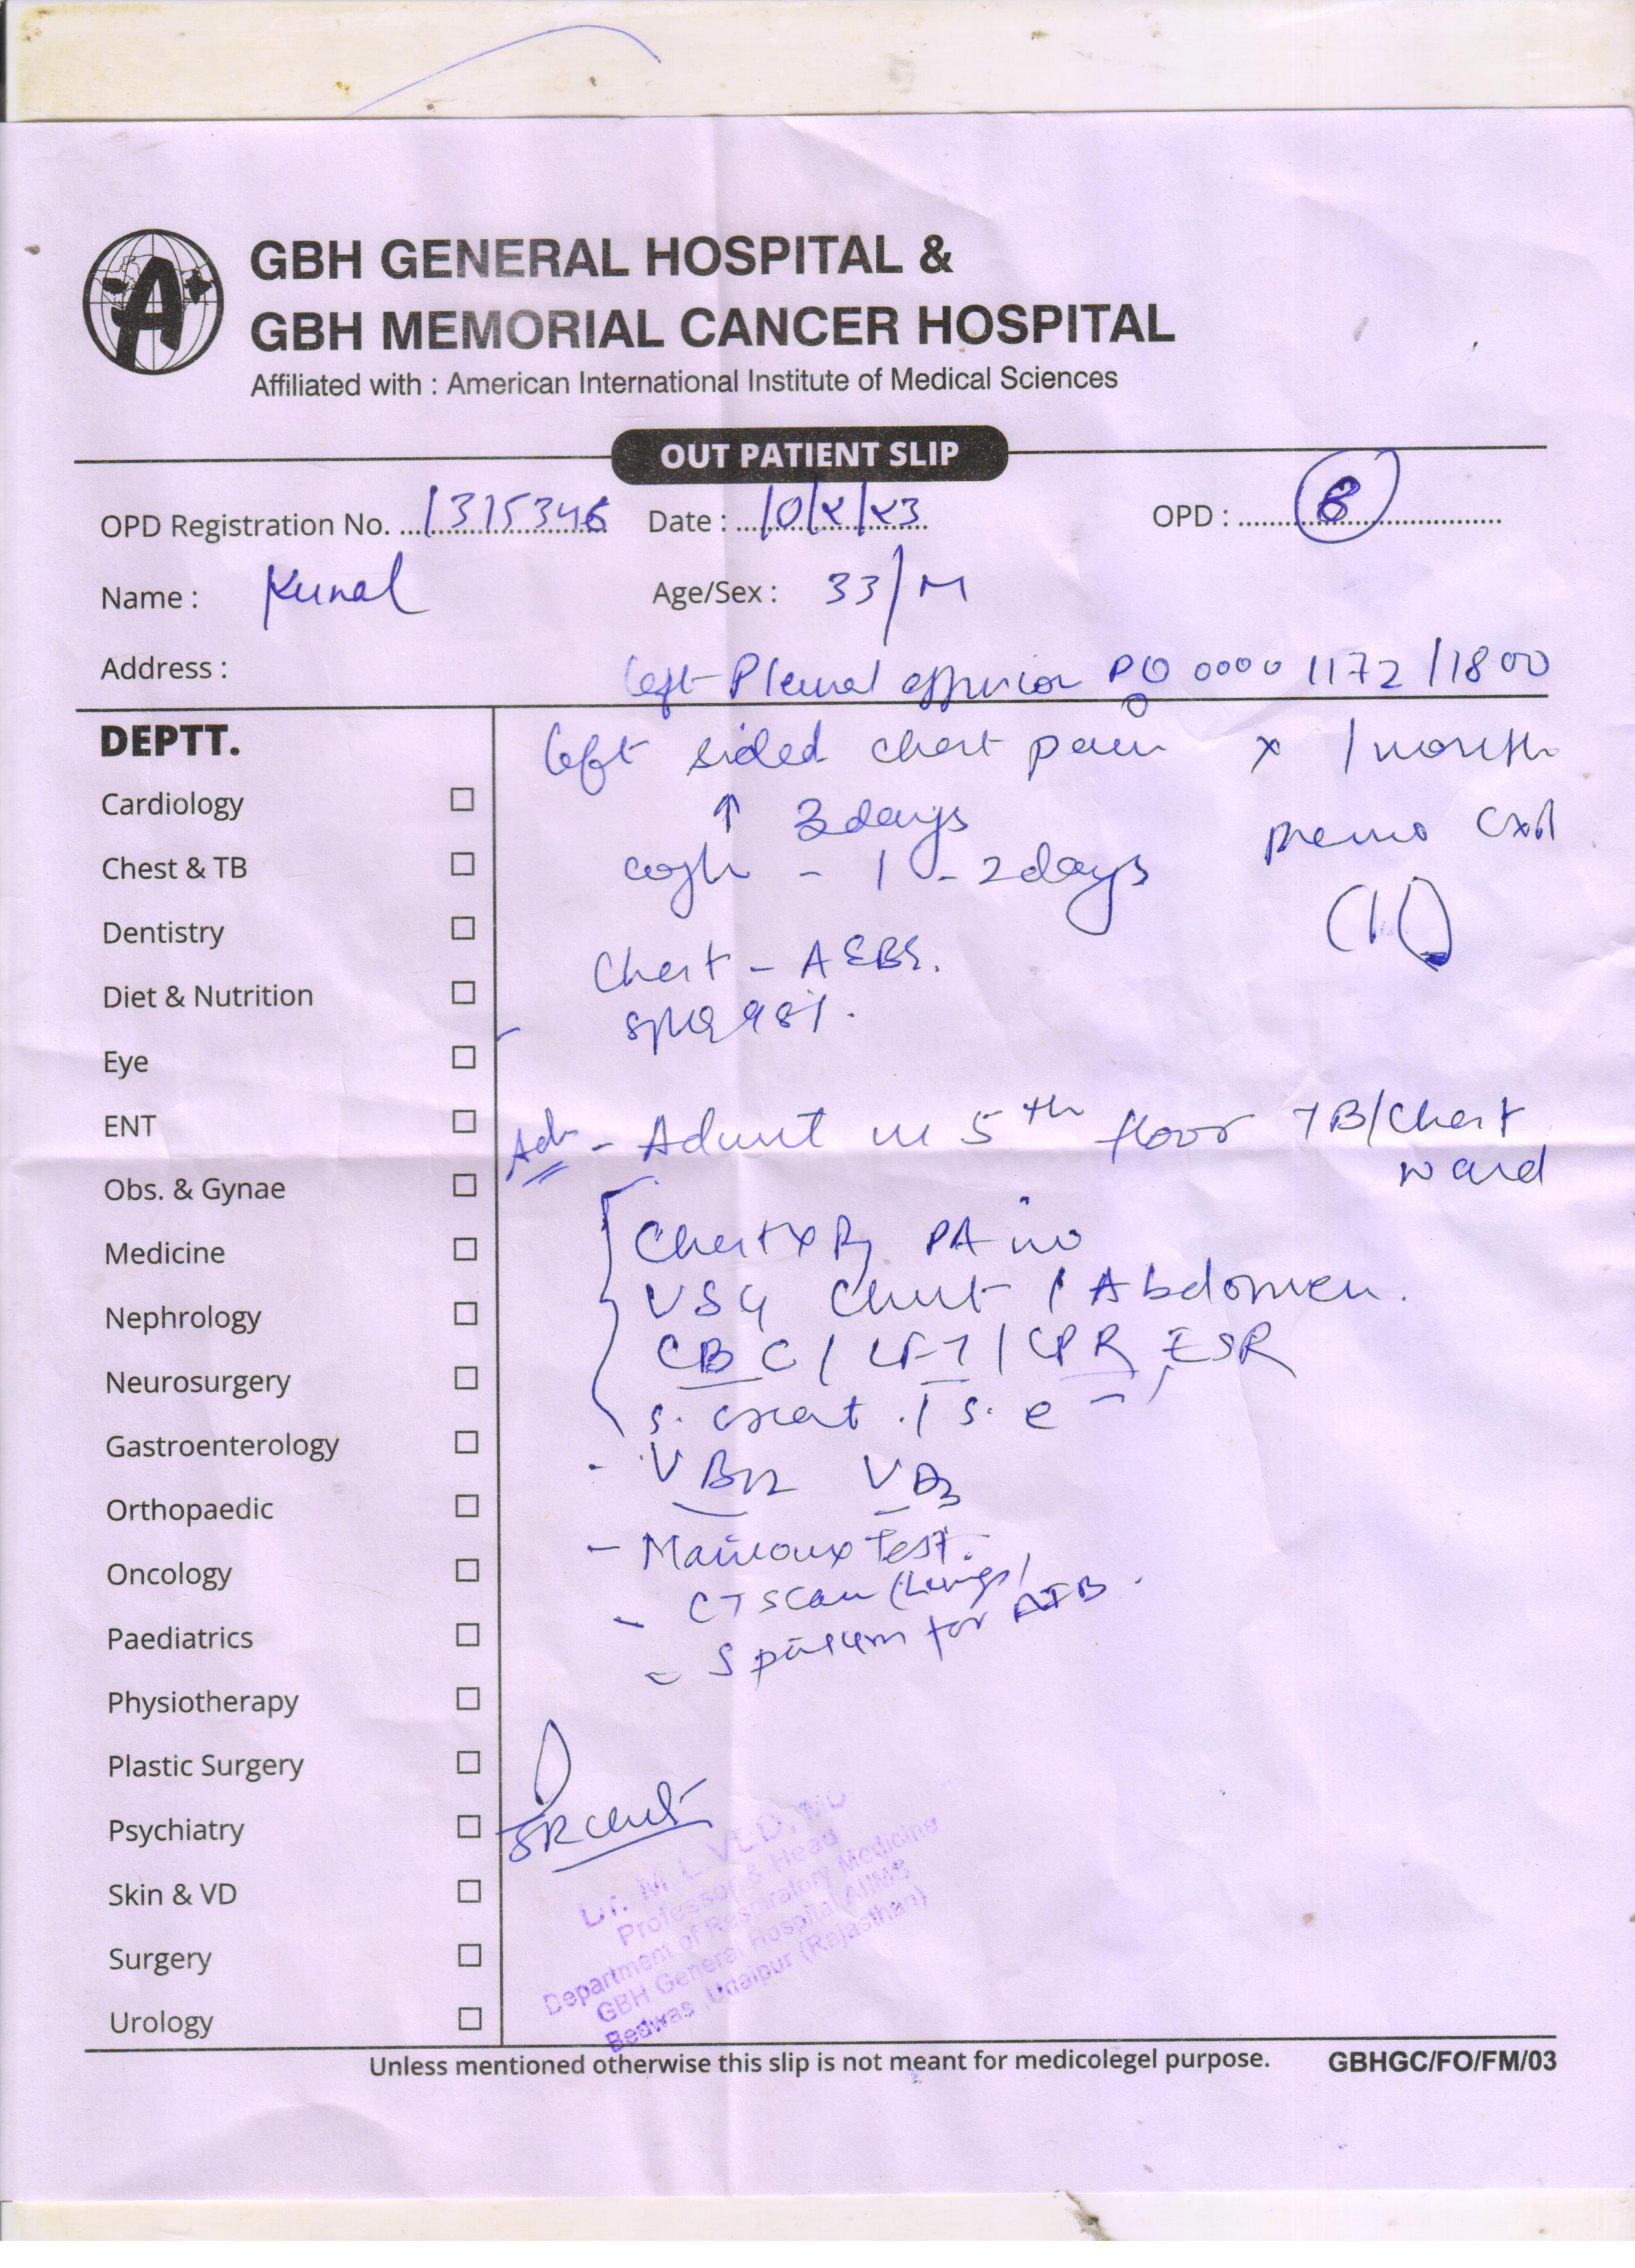 GBH GENERAL HOSPITAL &
GBH MEMORIAL CANCER HOSPITAL
Affiliated with : American International Institute of Medical Sciences
OUT PATIENT SLIP
OPD Registration No. 1315346 Date : 10/2/23 OPD : 8
Name : Kunal Age/Sex : 33/M
Address :
left Pleural effusion PO 0000 1172/1800
DEPTT.
left sided chest pain x 1 month
↑ 3 days
cough - 1-2 days
Chest - AEBS.
SPO2 98%.
Adv - Admit in 5th floor TB/Chest
ward
Chest x Ry PA
USG Chest / Abdomen.
CBC / LFT / CPR, ESR
S. creat. / S. e-
- V B12 V D3
- Mantoux Test.
- CT Scan (Lungs)
- Sputum for AFB.
Cardiology
Chest & TB
Dentistry
Diet & Nutrition
Eye
ENT
Obs. & Gynae
Medicine
Nephrology
Neurosurgery
Gastroenterology
Orthopaedic
Oncology
Paediatrics
Physiotherapy
Plastic Surgery
Psychiatry
Skin & VD
Surgery
Urology
Dr. M L VED, MD
Professor & Head
Department of Respiratory Medicine
GBH General Hospital (AIIMS
Bedwas, Udaipur (Rajasthan)
Unless mentioned otherwise this slip is not meant for medicolegel purpose. GBHGC/FO/FM/03